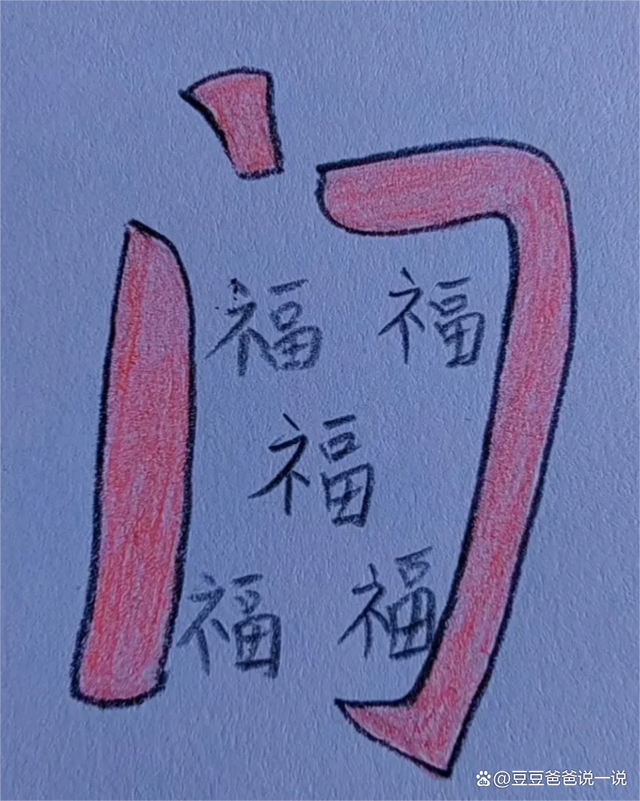 门
福 福
福
福 福
@豆豆爸爸说一说